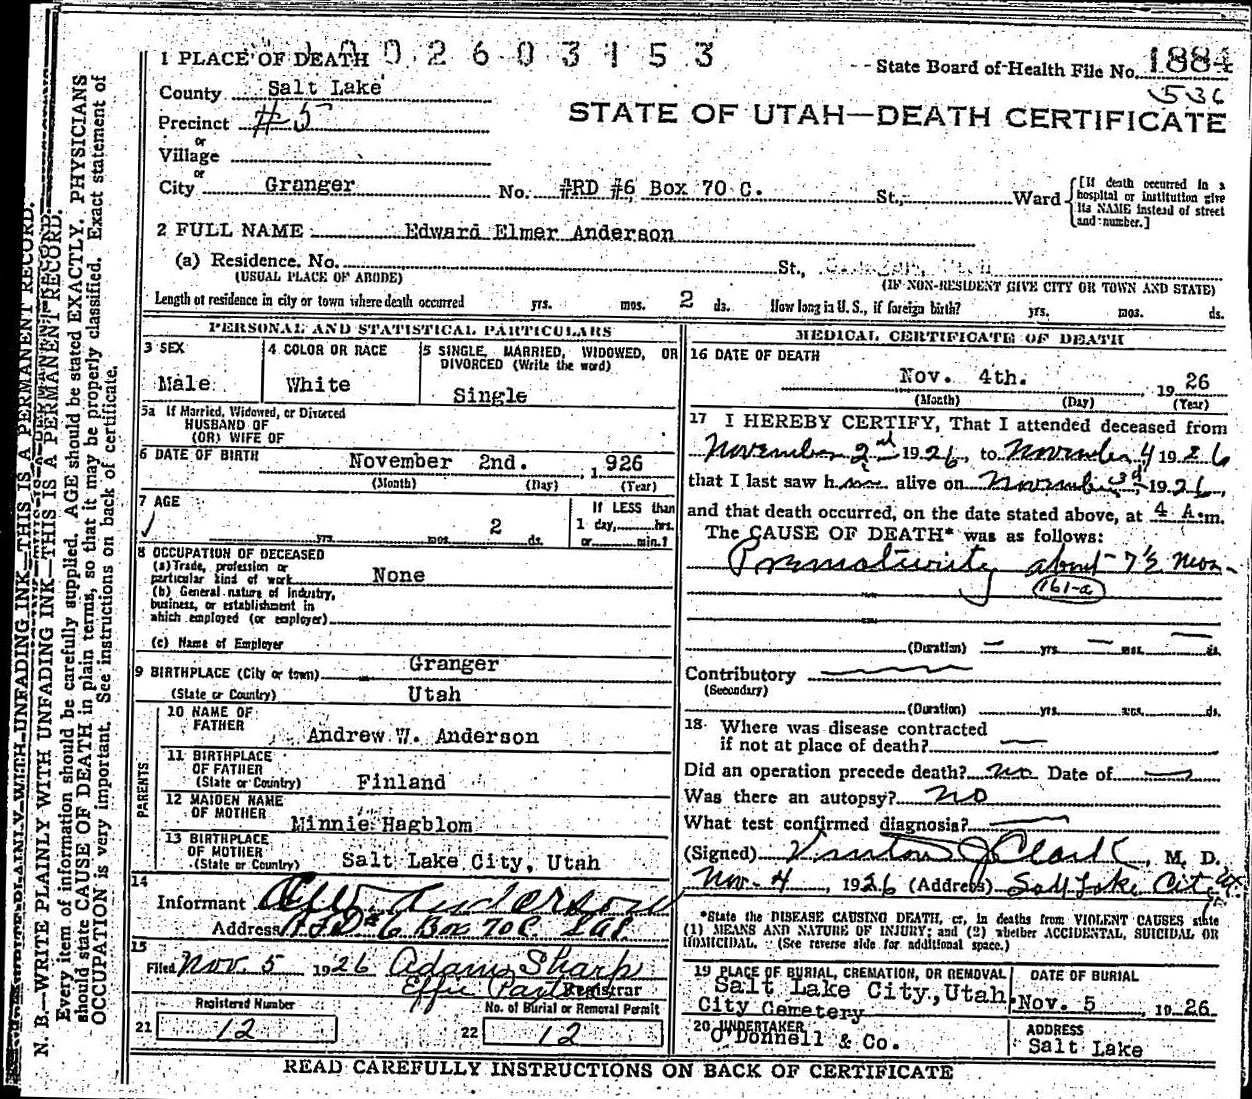 1 PLACE OF DEATH 0 0 2 6 0 3 1 5 3
State Board of Health File No. 1884
536
STATE OF UTAH—DEATH CERTIFICATE
County Salt Lake
Precinct #5
or
Village
or
City Granger No. #RD #6 Box 70 C. St., Ward
[If death occurred in a hospital or institution give its NAME instead of street and number.]
2 FULL NAME Edward Elmer Anderson
(a) Residence. No. St., Utah
(USUAL PLACE OF ABODE) (IF NON-RESIDENT GIVE CITY OR TOWN AND STATE)
Length of residence in city or town where death occurred yrs. mos. 2 ds. How long in U. S., if foreign birth? yrs. mos. ds.
PERSONAL AND STATISTICAL PARTICULARS
3 SEX
Male
4 COLOR OR RACE
White
5 SINGLE, MARRIED, WIDOWED, OR DIVORCED (Write the word)
Single
5a If Married, Widowed, or Divorced
HUSBAND OF
(OR) WIFE OF
6 DATE OF BIRTH November 2nd. 1926
(Month) (Day) (Year)
7 AGE
yrs. mos. 2 ds.
If LESS than
1 day, hrs.
or min.?
8 OCCUPATION OF DECEASED
(a) Trade, profession or
particular kind of work None
(b) General nature of industry,
business, or establishment in
which employed (or employer)
(c) Name of Employer
9 BIRTHPLACE (City or town) Granger
(State or Country) Utah
PARENTS
10 NAME OF
FATHER Andrew W. Anderson
11 BIRTHPLACE
OF FATHER
(State or Country) Finland
12 MAIDEN NAME
OF MOTHER Minnie Hagblom
13 BIRTHPLACE
OF MOTHER
(State or Country) Salt Lake City, Utah
14
Informant Anderson
Address RFD #6 Box 70C
15
Filed Nov. 5 1926 Adam Sharp
Effie Registrar
Registered Number
21 12
No. of Burial or Removal Permit
22 12
MEDICAL CERTIFICATE OF DEATH
16 DATE OF DEATH
Nov. 4th. 1926
(Month) (Day) (Year)
17 I HEREBY CERTIFY, That I attended deceased from
November 2nd 1926, to November 4 1926
that I last saw h alive on November 3rd, 1926,
and that death occurred, on the date stated above, at 4 A.m.
The CAUSE OF DEATH* was as follows:
Prematurity about 7½ mos
161-a
(Duration) — yrs. — mos. — ds.
Contributory
(Secondary)
(Duration) yrs. mos. ds.
18 Where was disease contracted
if not at place of death? —
Did an operation precede death? no Date of —
Was there an autopsy? no
What test confirmed diagnosis? —
(Signed) J Clark, M. D.
Nov. 4, 1926 (Address) Salt Lake City
*State the DISEASE CAUSING DEATH, or, in deaths from VIOLENT CAUSES state
(1) MEANS AND NATURE OF INJURY; and (2) whether ACCIDENTAL, SUICIDAL OR
HOMICIDAL. (See reverse side for additional space.)
19 PLACE OF BURIAL, CREMATION, OR REMOVAL
Salt Lake City, Utah.
City Cemetery
DATE OF BURIAL
Nov. 5, 1926
20 UNDERTAKER
O'Donnell & Co.
ADDRESS
Salt Lake
READ CAREFULLY INSTRUCTIONS ON BACK OF CERTIFICATE
N. B.—WRITE PLAINLY WITH UNFADING INK—THIS IS A PERMANENT RECORD.
Every item of information should be carefully supplied. AGE should be stated EXACTLY. PHYSICIANS
should state CAUSE OF DEATH in plain terms, so that it may be properly classified. Exact statement of
OCCUPATION is very important. See instructions on back of certificate.